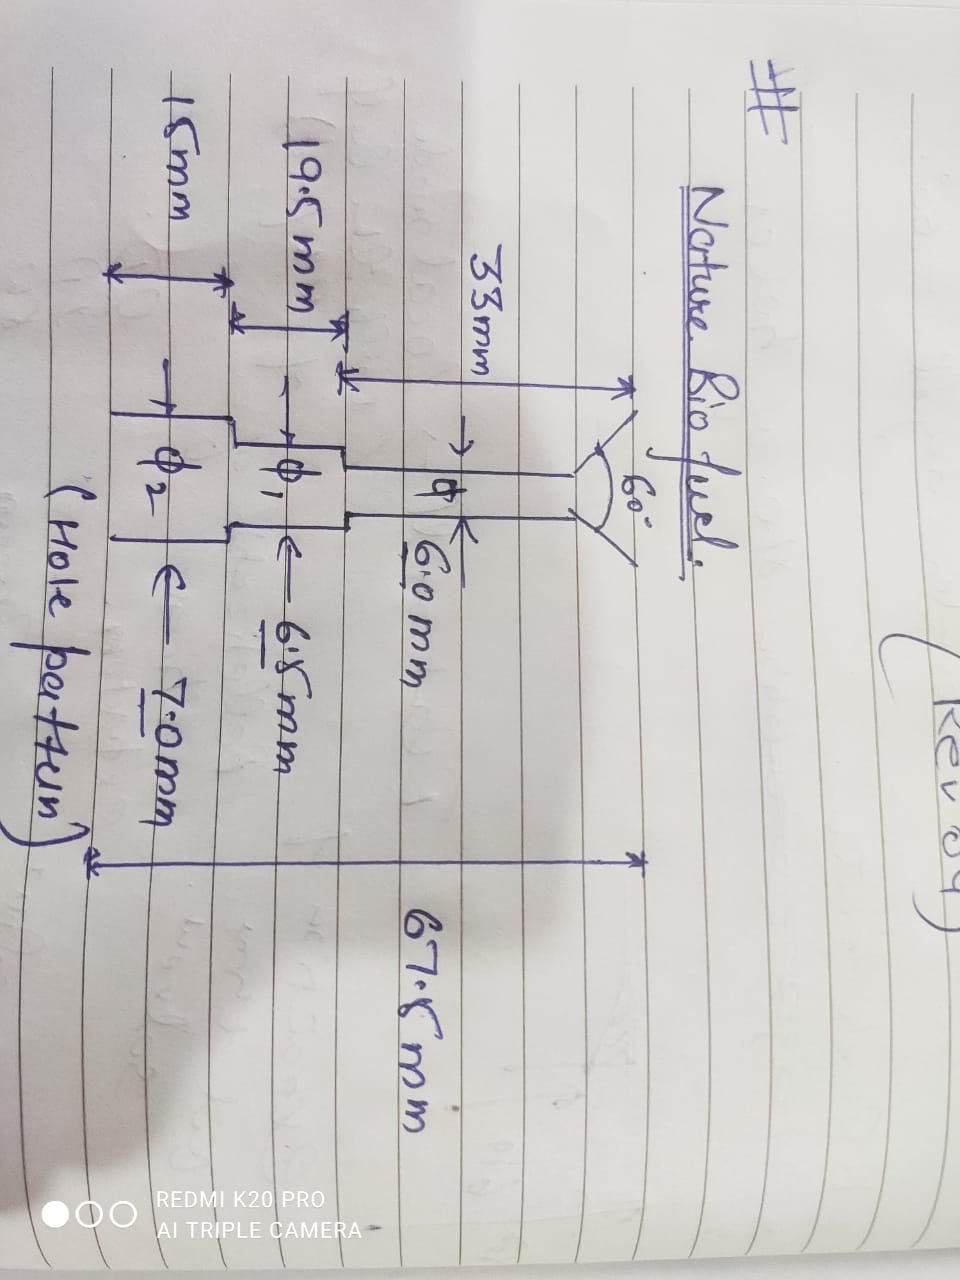 (Rev 04)
#
Narture Bio fuel.
60°
33mm
ϕ 6.0mm
19.5mm
ϕ1 ← 6.5mm
15mm
ϕ2 ← 7.0mm
67.5mm
(Hole pattern)
REDMI K20 PRO
AI TRIPLE CAMERA